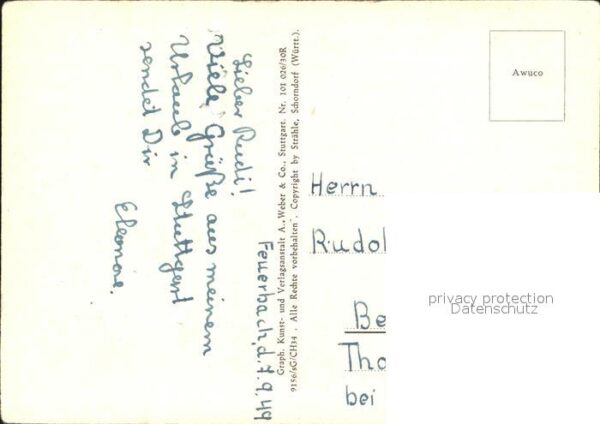 Feuerbach, d. 7.9.49
Lieber Rudi!
Viele Grüße aus meinem
Urlaub in Stuttgart
sendet Dir
Eleonore.
Graph. Kunst- und Verlagsanstalt A. Weber & Co., Stuttgart. Nr. 101 026/30R
9156/sG/CH34 . Alle Rechte vorbehalten . Copyright by Strähle, Schorndorf (Württ.).
Awuco
Herrn
Rudol
Be
Tho
bei
privacy protection
Datenschutz